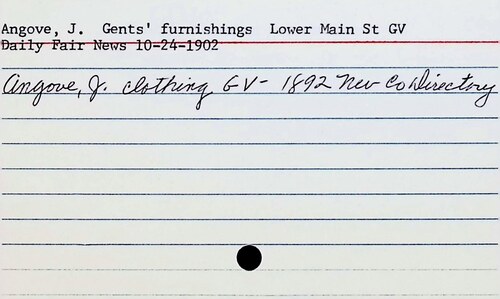 Angove, J.  Gents' furnishings  Lower Main St GV
Daily Fair News 10-24-1902
Angove, J. clothing GV - 1892 Nev Co Directory